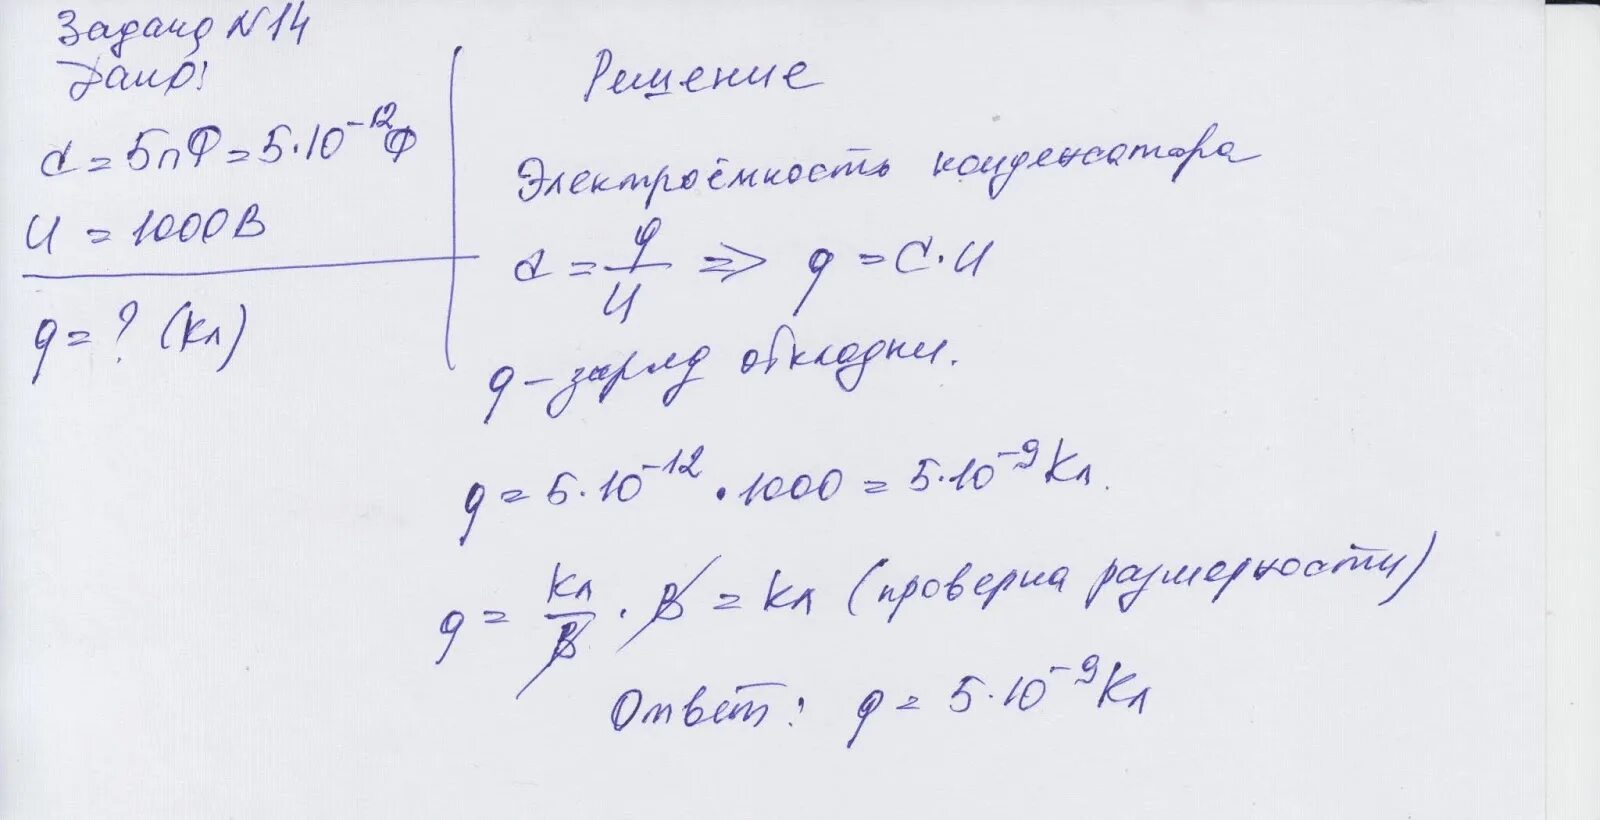 Задача №14
Дано:
C = 5пФ = 5·10⁻¹²Ф
U = 1000В
q = ? (Кл)
Решение
Электроёмкость конденсатора
C = q/U => q = C·U
q – заряд обкладки.
q = 5·10⁻¹² · 1000 = 5·10⁻⁹ Кл.
q = Кл/В · В = Кл (проверка размерности)
Ответ: q = 5·10⁻⁹ Кл